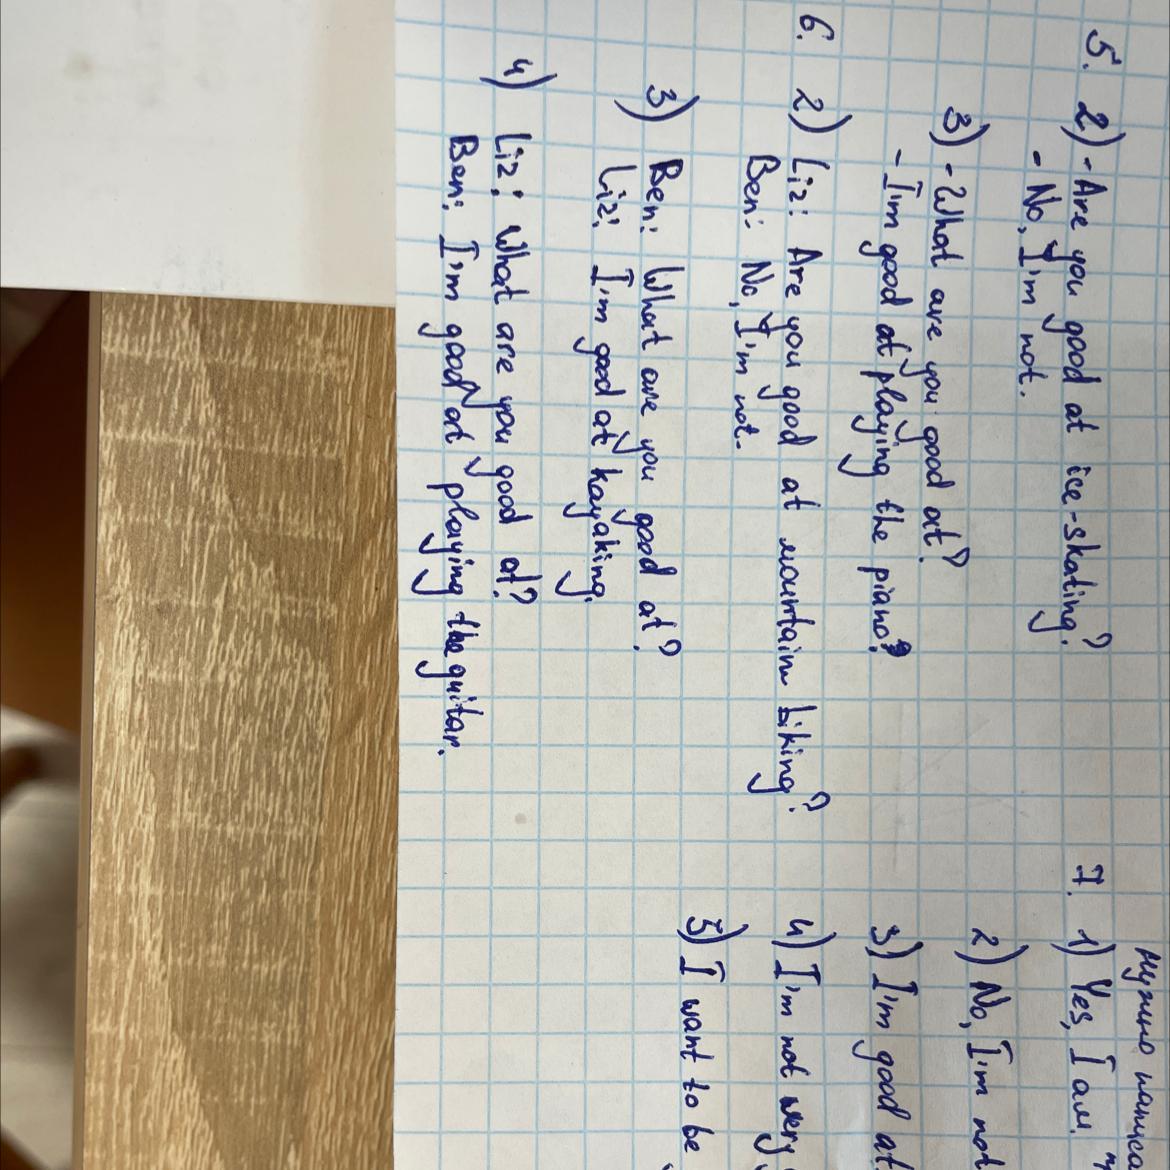 5. 2) - Are you good at ice-skating?
- No, I'm not.
3) - What are you good at?
- I'm good at playing the piano?
6. 2) Liz: Are you good at mountain biking?
Ben: No, I'm not.
3) Ben: What are you good at?
Liz: I'm good at kayaking.
4) Liz: What are you good at?
Ben: I'm good at playing the guitar.
нужно
7. 1) Yes, I am.
2) No, I'm not
3) I'm good at
4) I'm not very
5) I want to be